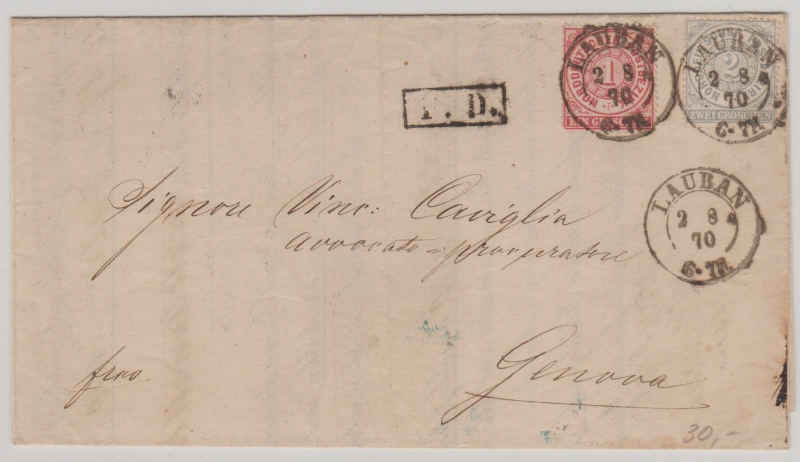 LAUBAN
2 8
70
6-7N
NORDD
POSTBEZIRK
1
EIN GROSCHEN
LAUBAN
2 8
70
6-7N
2
ZWEI GROSCHEN
P. D.
LAUBAN
2 8
70
6-7N
Signore Vinc: Caviglia
avvocato=procuratore
Genova
frco.
30,-